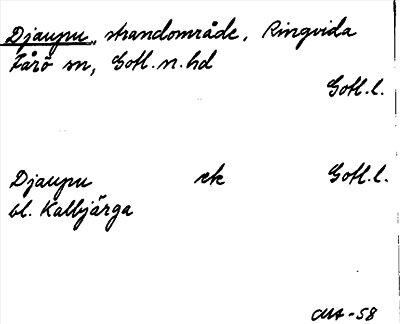 Djaupu, strandområde, Ringvida
Fårö sn, Gotl. n. hd
Gotl. l.
Djaupu ek Gotl. l.
bl. Kalbjärga
-58